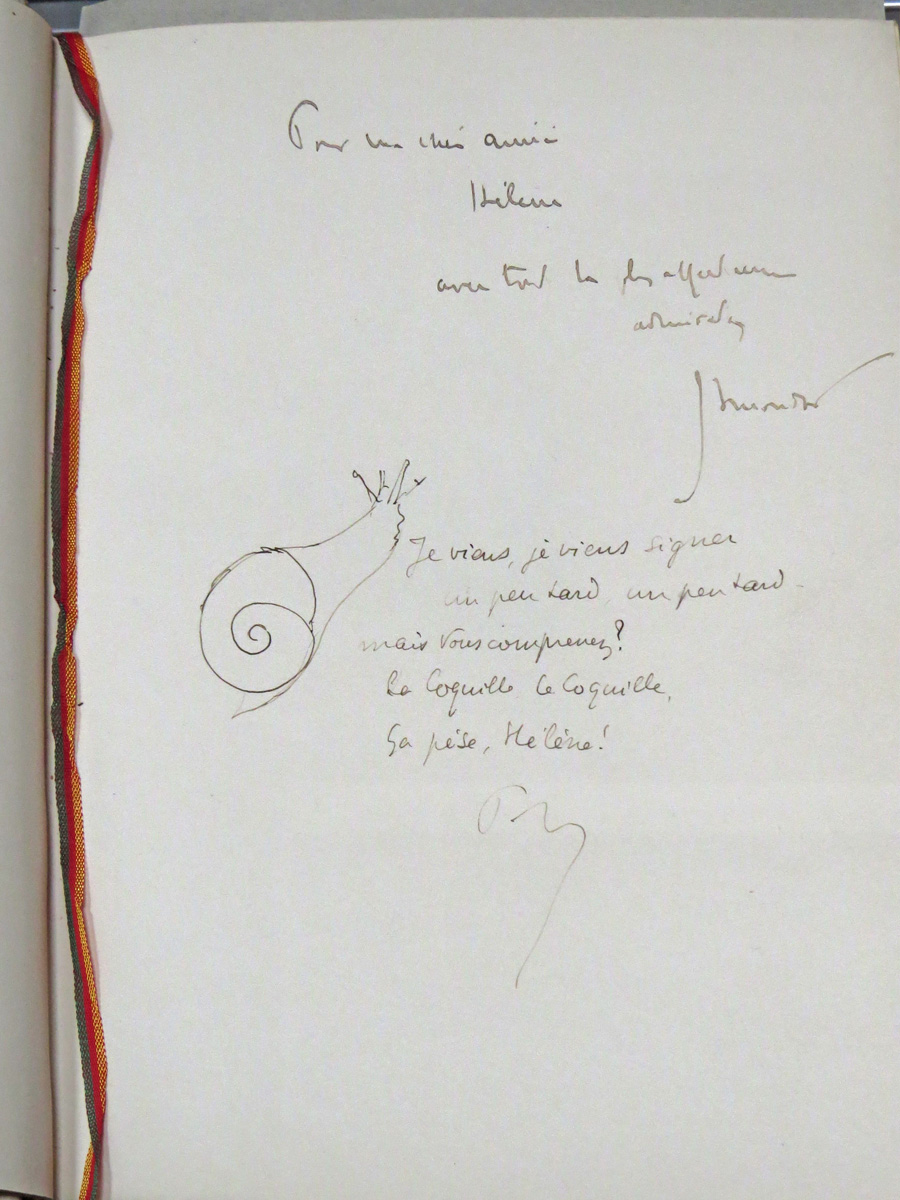 Pour ma chère amie
Hélène
avec toute la plus affectueuse
admiration
Je viens, je viens signer
un peu tard, un peu tard
mais Vous comprenez?
La Coquille, la Coquille,
ça pèse, Hélène!